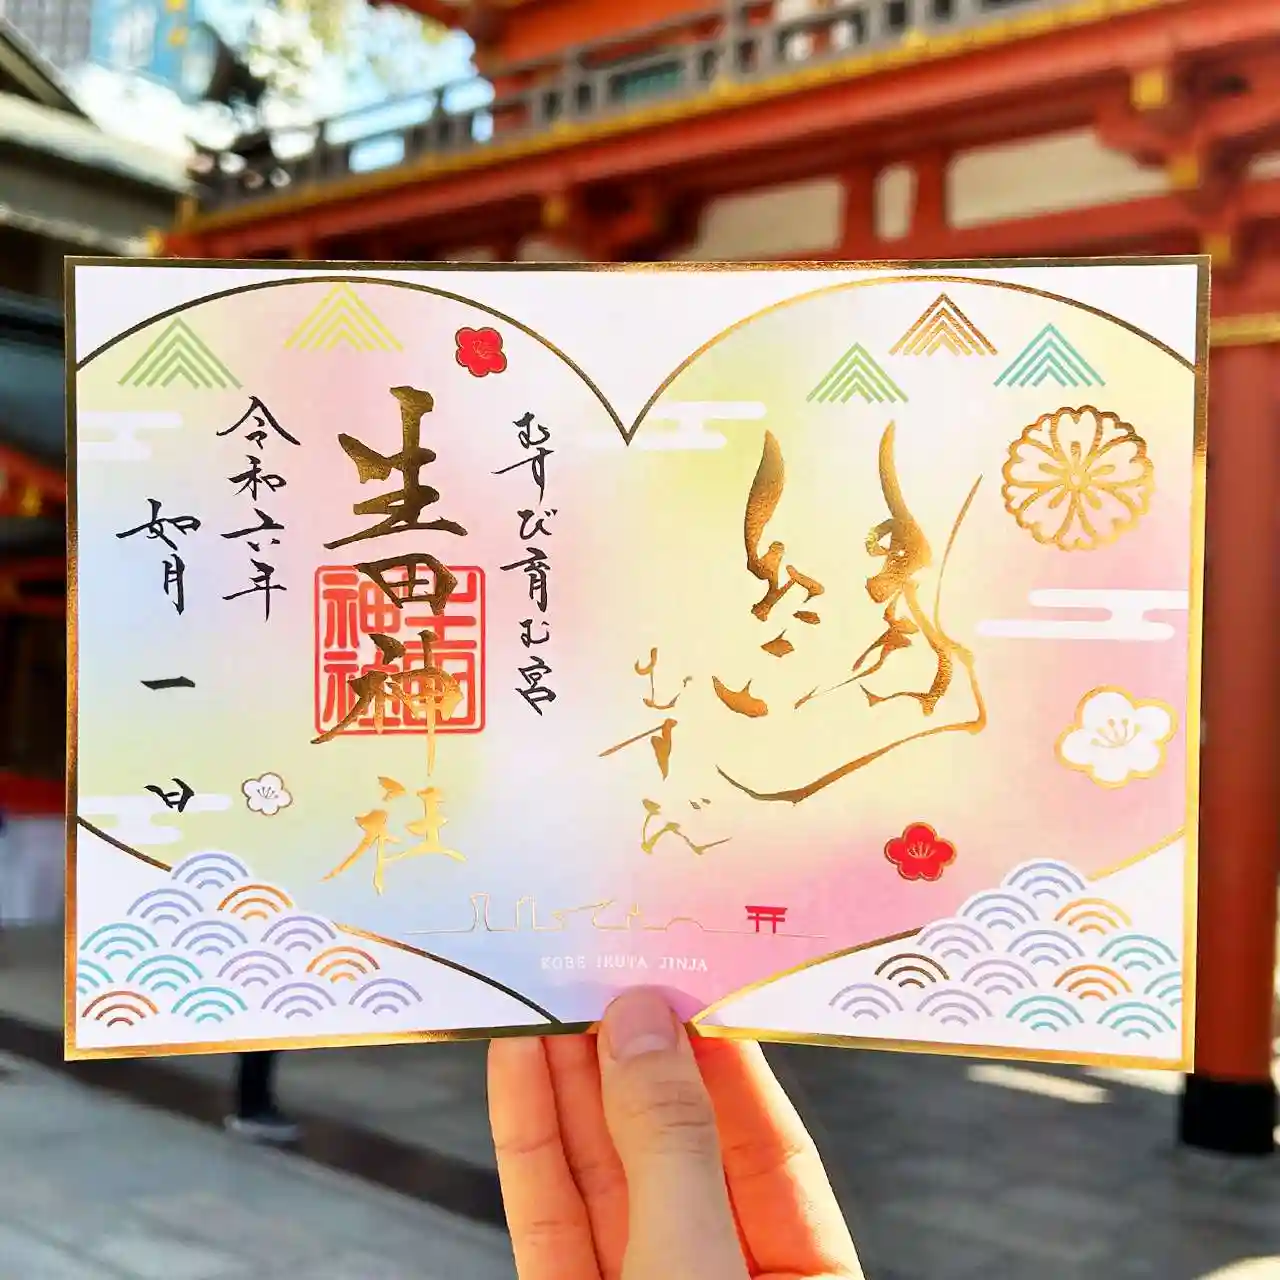 縁
むすび
むすび育む宮
生田神社
生田神社
令和六年
如月一日
KOBE IKUTA JINJA